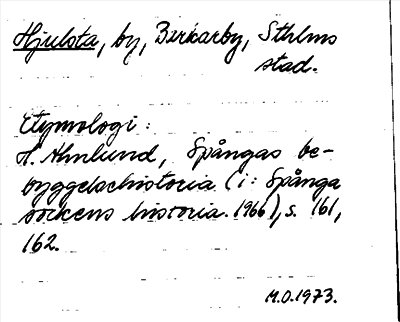 Hjulsta, by, Barkarby, Sthlms
stad.
Etymologi:
H. Almlund, Spångas be-
byggelsehistoria (i: Spånga
sockens historia. 1966), s. 161,
162.
M.O.1973.